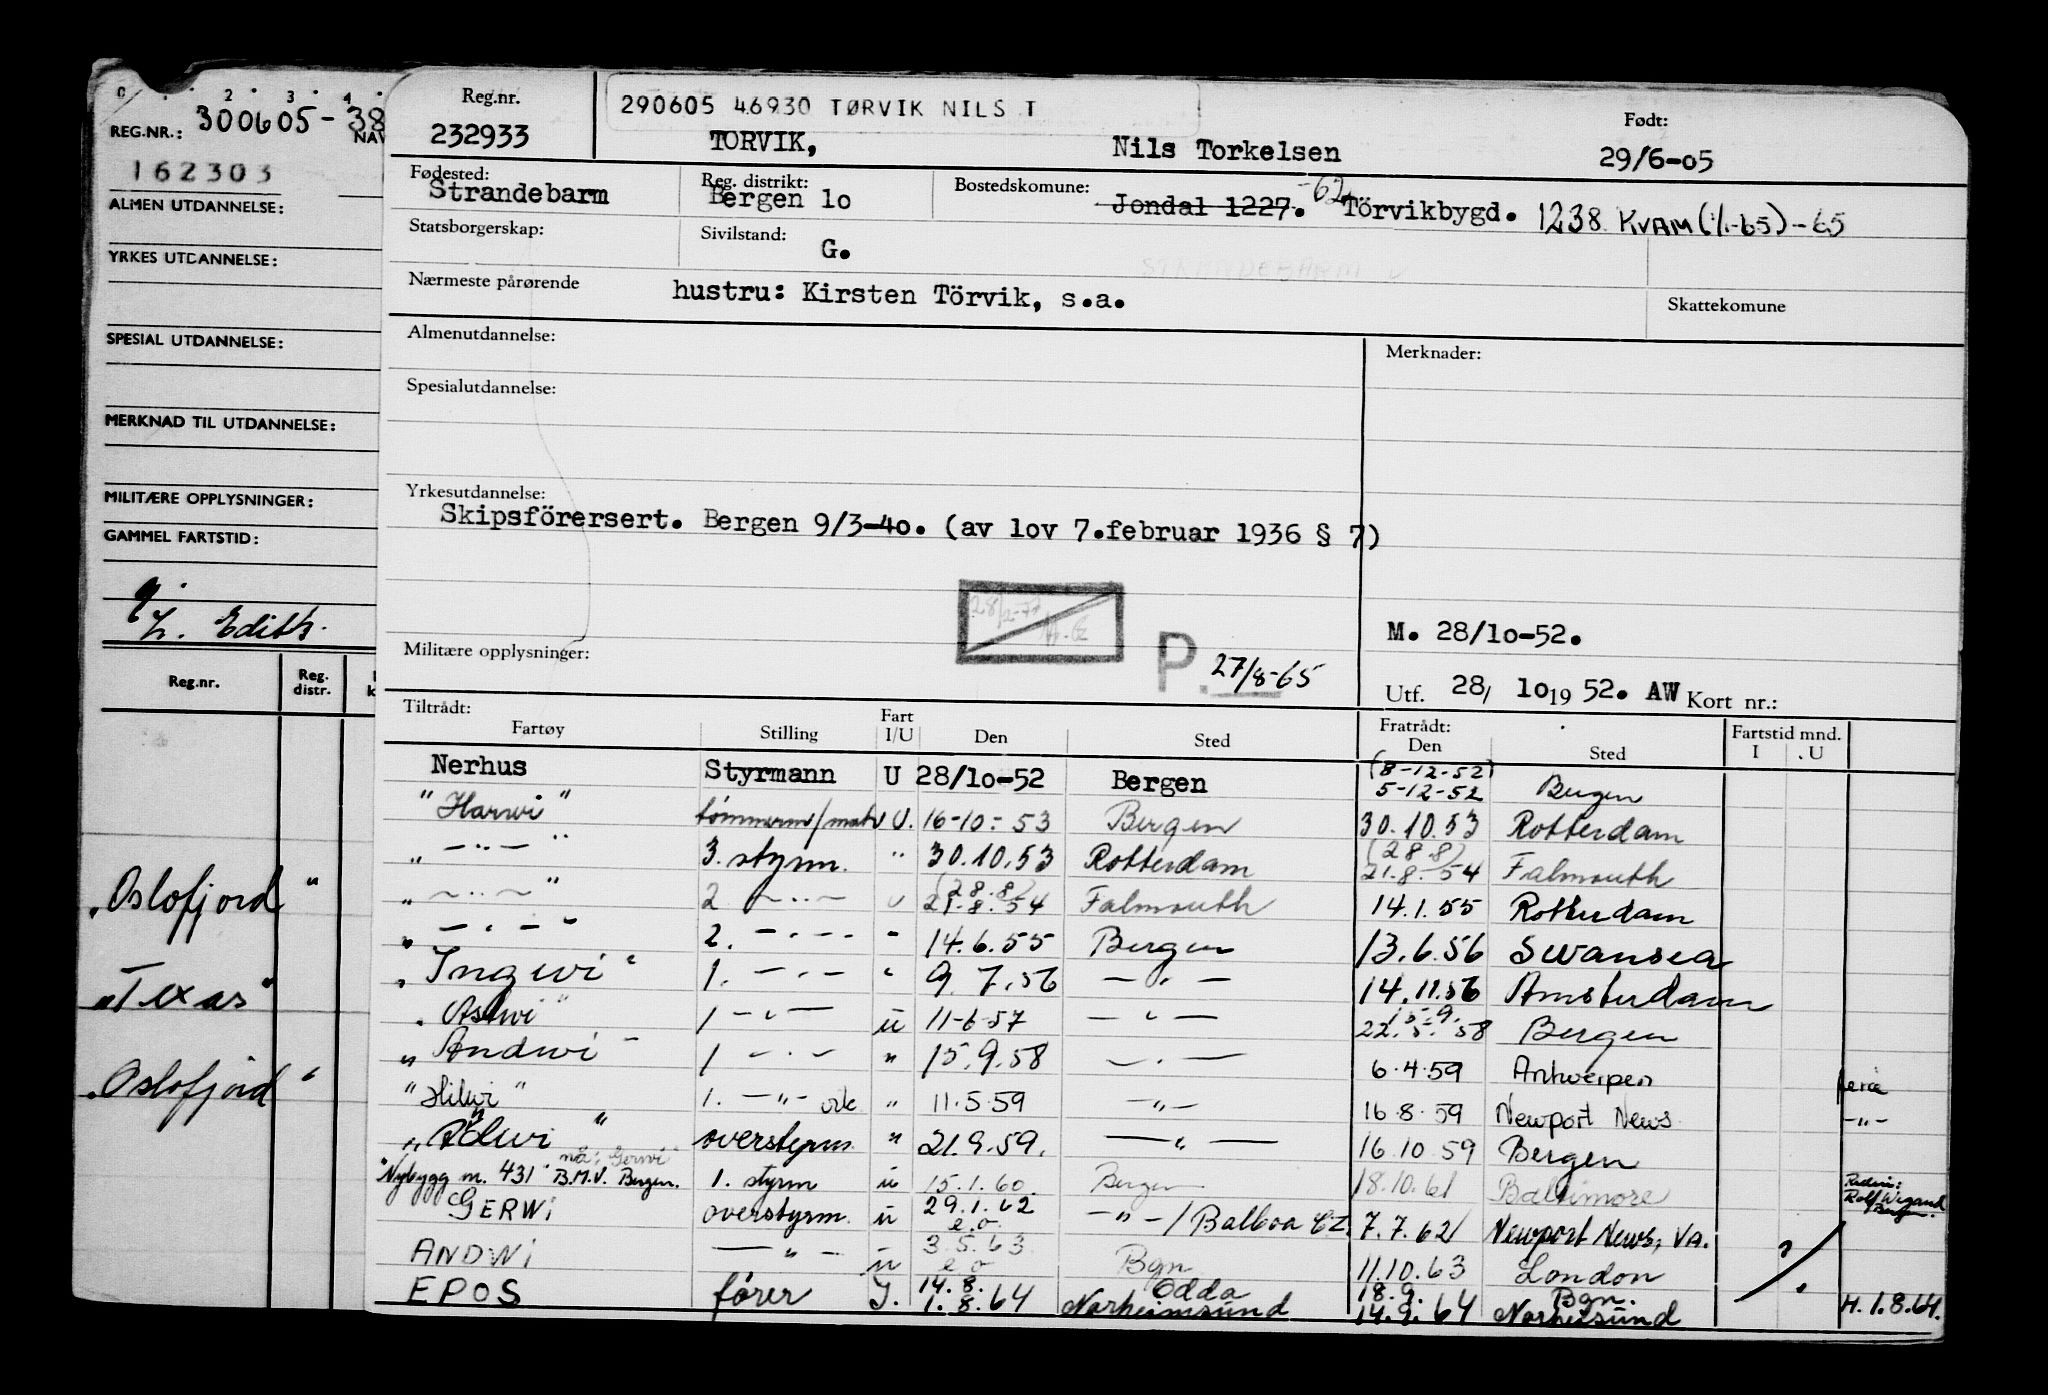 0 . 2 . 3 . 4 .
REG.NR.: 300605-38
NAV
162303
ALMEN UTDANNELSE:
YRKES UTDANNELSE:
SPESIAL UTDANNELSE:
MERKNAD TIL UTDANNELSE:
MILITÆRE OPPLYSNINGER:
GAMMEL FARTSTID:
Edith.
Reg.nr. Reg. distr.
"Oslofjord"
"Texas"
"Oslofjord"
Reg.nr. 232933
290605 46930 TØRVIK NILS T
TORVIK, Nils Torkelsen
Født: 29/6-05
Fødested: Strandebarm
Reg. distrikt: Bergen 10
Bostedskomune: Jondal 1227. -62 Törvikbygd. 1238 KVAM (1/1-65) -65
Statsborgerskap:
Sivilstand: G.
STRANDEBARM
Nærmeste pårørende hustru: Kirsten Törvik, s.a.
Skattekomune
Almenutdannelse:
Merknader:
Spesialutdannelse:
Yrkesutdannelse:
Skipsförersert. Bergen 9/3-40. (av lov 7.februar 1936 § 7)
M. 28/10-52.
Militære opplysninger:
P. 27/8-65
Utf. 28/ 10 19 52. AW Kort nr.:
Tiltrådt: Fratrådt:
Fartøy Stilling Fart I/U Den Sted Den Sted Fartstid mnd. I . U
Nerhus Styrmann U 28/10-52 Bergen (8-12-52) 5-12-52 Bergen
"Harwi" tømmerm/matr U. 16-10-53 Bergen 30.10.53 Rotterdam
" — " — " 3. styrm. " 30.10.53 Rotterdam (28.8) 21.8.54 Falmouth
" — " — " 2 — " — u (28.8) 21.8.54 Falmouth 14.1.55 Rotterdam
" — " — " 2. — " — " 14.6.55 Bergen 13.6.56 Swansea
"Ingwi" 1. — " — " 9.7.56 — " — 14.11.56 Amsterdam
"Askwi" 1 — " — u 11-6-57 — " — 15.9. 22.5.58 Bergen
"Andwi" 1 — " — " 15.9.58 — " — 6.4.59 Antwerpen ferie
"Hilwi" 1. — " — " 11.5.59 — " — 16.8.59 Newport News — " —
" " overstyrm. " 21.9.59. — " — 16.10.59 Bergen
"Nybygg nr. 431" nå: "Gerwi" B.M.V. Bergen. 1. styrm u 15.1.60. Bergen 18.10.61 Baltimore Rederi: Rolf Wigand Bergen.
GERWI overstyrm. u 29.1.62 e.o. — " — / Balboa CZ. 7.7.62 Newport News, VA.
ANDWI — " — u 3.5.63 e o Bgn 11.10.63 London
EPOS fører I. 14.8. 1.8.64 Odda Norheimsund 18.9. 14.9.64 Bgn. Norheisund H. 1.8.64.